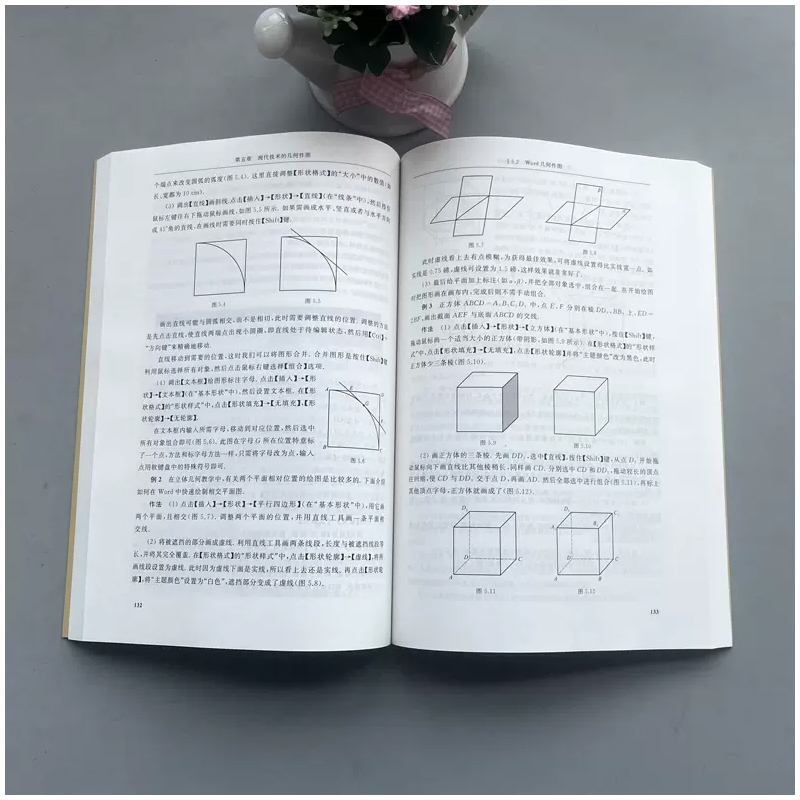 第五章 现代技术的几何作图
个端点来改变圆弧的弧度(图 5.4). 这里直接调整【形状格式】的“大小”中的数值(如
长、宽都为 10 cm).
(3) 画出【直线】画斜线.点击【插入】→【形状】→【直线】(在“线条”中),然后按住
鼠标左键往右下拖动鼠标画线,如图 5.5 所示.如果需画成水平、竖直或者与水平方向
成 45°角的直线,在画线时需要同时按住【Shift】键.
图 5.4
图 5.5
画出直线可能与圆弧相交,而不是相切,此时需要调整直线的位置.调整的方法
是先点击直线,使直线两端点出现小圆圈,即直线处于待编辑状态,然后用【Ctrl】+
“方向键”来精确地移动.
直线移动到需要的位置,这时我们可以将图形合并.合并图形是按住【Shift】键
利用鼠标选择所有对象,然后点击鼠标右键选择【组合】选项.
(4) 调出【文本框】给图形标注字母.点击【插入】→【形
状】→【文本框】(在“基本形状”中),然后设置文本框.在【形
状格式】的“形状样式”中,点击【形状填充】→【无填充】,【形
状轮廓】→【无轮廓】.
在文本框内输入所需字母,移动到对应位置,然后选中
所有对象组合即可(图 5.6).此图在字母 G 所在位置特意标
了一个点,方法和标字母方法一样,只需将字母改为点,输入
点用软键盘中的特殊符号即可.
A
E
D
F
G
B
C
图 5.6
例 2 在立体几何教学中,有关两个平面相对位置的绘图是比较多的.下面介绍
如何在 Word 中快速绘制相交平面图.
作法 (1) 点击【插入】→【形状】→【平行四边形】(在“基本形状”中),用它画
两个平面,且相交(图 5.7).调整两个平面的位置,并用直线工具画一条平面相
交线.
(2) 将被遮挡的部分画成虚线.利用直线工具画两条线段,长度与被遮挡线段等
长,并将其完全覆盖.在【形状格式】的“形状样式”中,点击【形状轮廓】→【虚线】,将所
画线段设置为虚线.此时因为虚线下面是实线,所以看上去还是实线.再点击【形状轮
廓】,将“主题颜色”设置为“白色”,遮挡部分变成了虚线(图 5.8).
132
§5.2 Word 几何作图
图 5.7
β
图 5.8
此时虚线看上去有点模糊,为获得最佳效果,可将虚线设置得比实线宽一点.如
实线是 0.75 磅,虚线可设置为 1.5 磅,这样效果就非常好了.
(3) 最后给平面加上标注(如 α,β),并把全部对象选中,组合在一起.在开始绘图
时把图形画在画布内,完成后则不需手动组合.
例 3 正方体 ABCD-A₁B₁C₁D₁ 中,点 E、F 分别在棱 DD₁、BB₁ 上,
2BF,画出截面 AEF 与底面 ABCD 的交线.
作法 (1) 点击【插入】→【形状】→【立方体】(在“基本形状”中),按住【Shift】键,
拖动鼠标画一个适当大小的正方体(带阴影,如图 5.9 所示).在【形状格式】的“形状样
式”中,点击【形状填充】→【无填充】,点击【形状轮廓】并将“主题颜色”改为黑色,此时
正方体少三条棱(图 5.10).
图 5.9
图 5.10
(2) 画正方体的三条棱.先画 DD₁,选中【直线】,按住【Shift】键,从点 D₁ 开始拖
动鼠标向下画直线比其他棱稍长,同样画 CD.分别选中 CD 和 DD₁,拖动较长的顶点
往回缩,使 CD 与 DD₁ 交于点 D,再画 AD.然后全部选中进行组合(图 5.11),再标上
其他顶点字母,正方体就画成了(图 5.12).
D₁
D
C
A
B
图 5.11
D₁
C₁
A₁
B₁
D
C
A
B
图 5.12
133